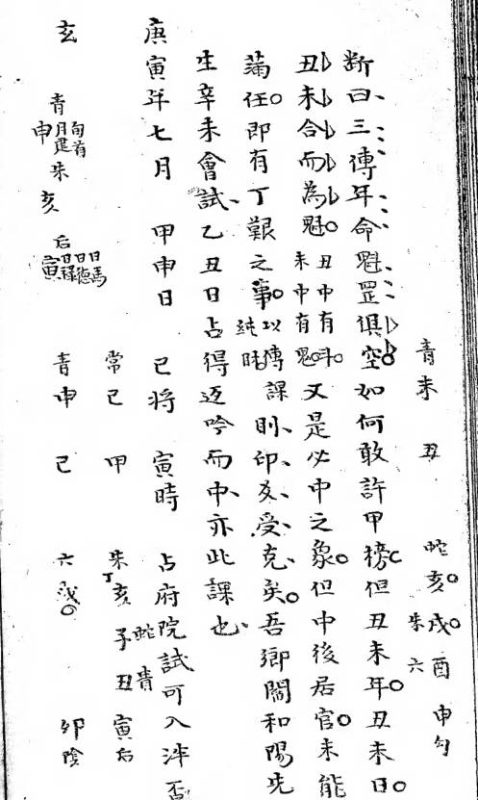 青未 丑 蛇亥 戌 酉 申勾
朱 六
斷曰三傳年命魁罡俱空如何敢許甲榜但丑未年丑未日
丑未合而為魁丑中有斗未中有鬼又是必中之象但中後居官未能
蒞任即有丁艱之事以傳課純財則印爻受克矣吾鄉闔和陽先
生辛未會試乙丑日占得返吟而中亦此課也
庚寅年七月 甲申日 巳將 寅時 占府院試可入泮否
常巳 甲 朱丁亥 子蛇 丑青 寅后
玄 青申旬首月建 朱亥 后寅日祿日德日馬
青申 巳 六戌 卯陰